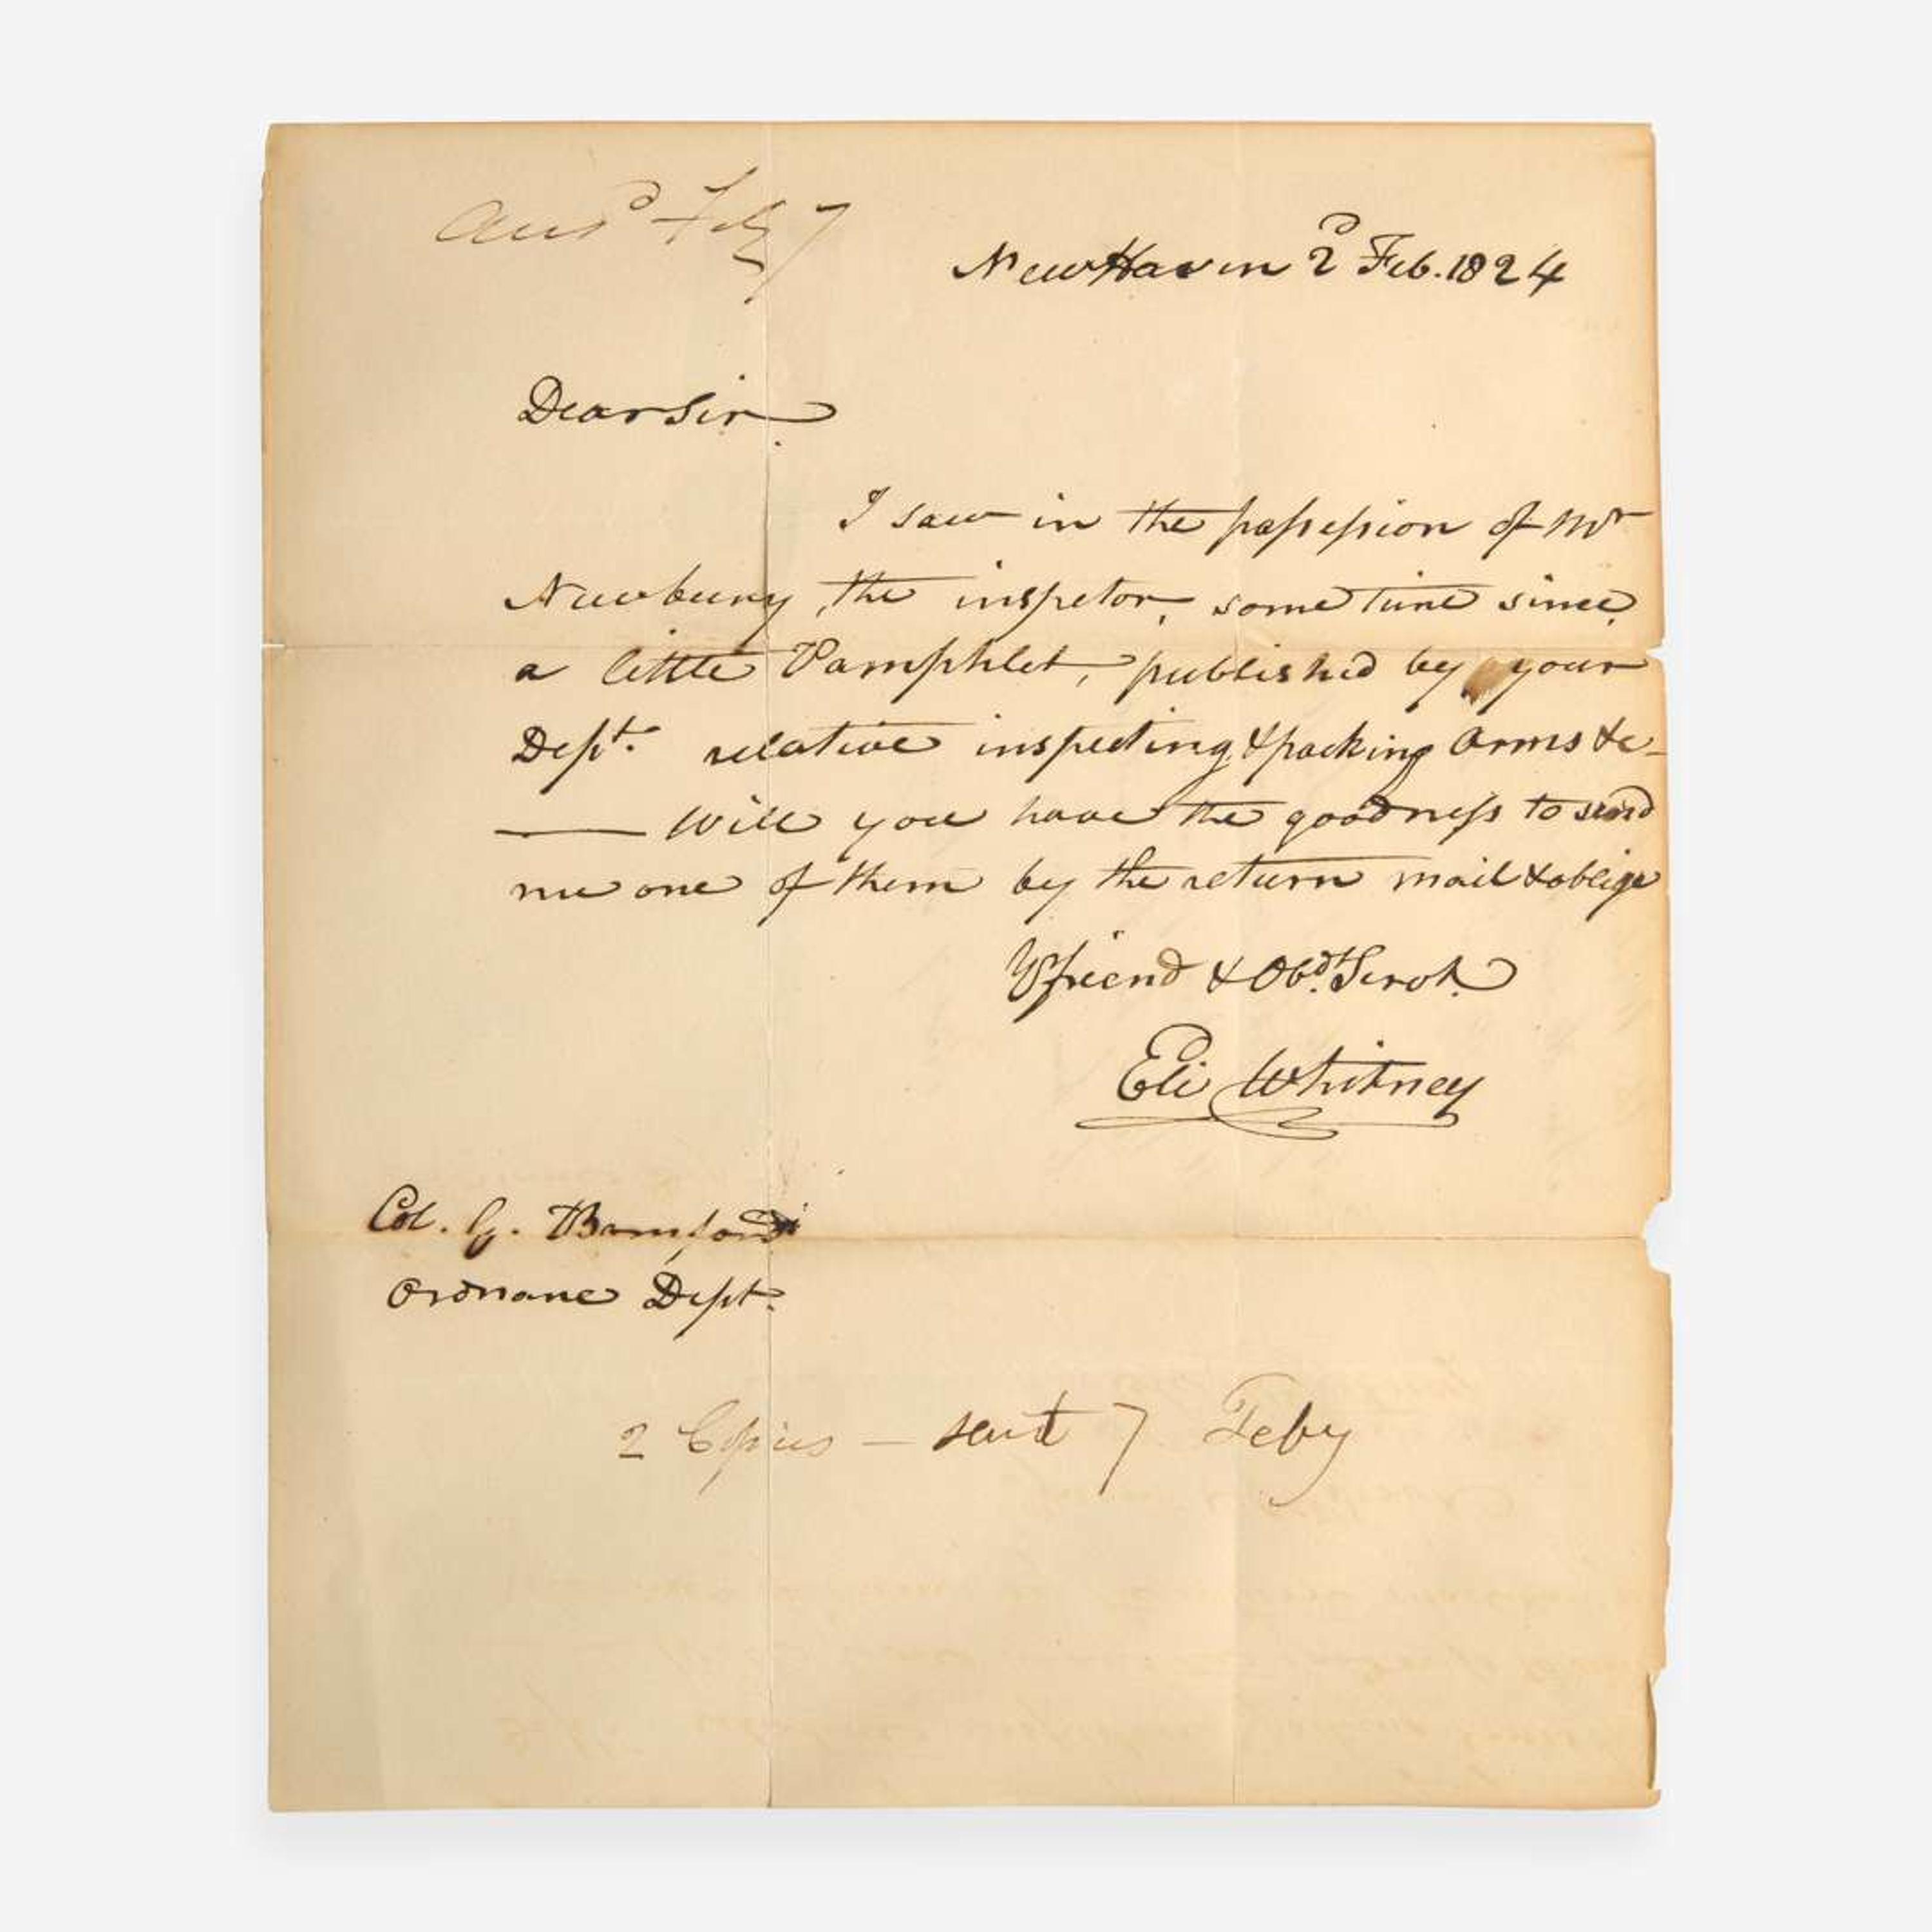 Ansd Feby 7
New Haven 2d Feb. 1824
Dear Sir.
I saw in the possession of Mr
Newbury, the inspetor, some time since,
a little Pamphlet, published by your
Dept. relative inspecting & packing Arms &c-
— Will you have the goodness to send
me one of them by the return mail & oblige
Yr friend & Obdt. Servt.
Eli Whitney
Col. G. Bomford
Ordnance Dept.
2 Copies — sent 7 Feby